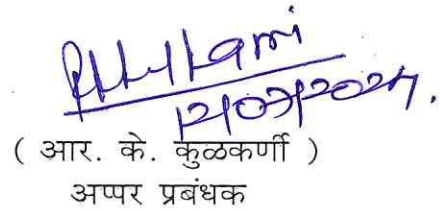 12/07/2024.
( आर. के. कुळकर्णी )
अप्पर प्रबंधक